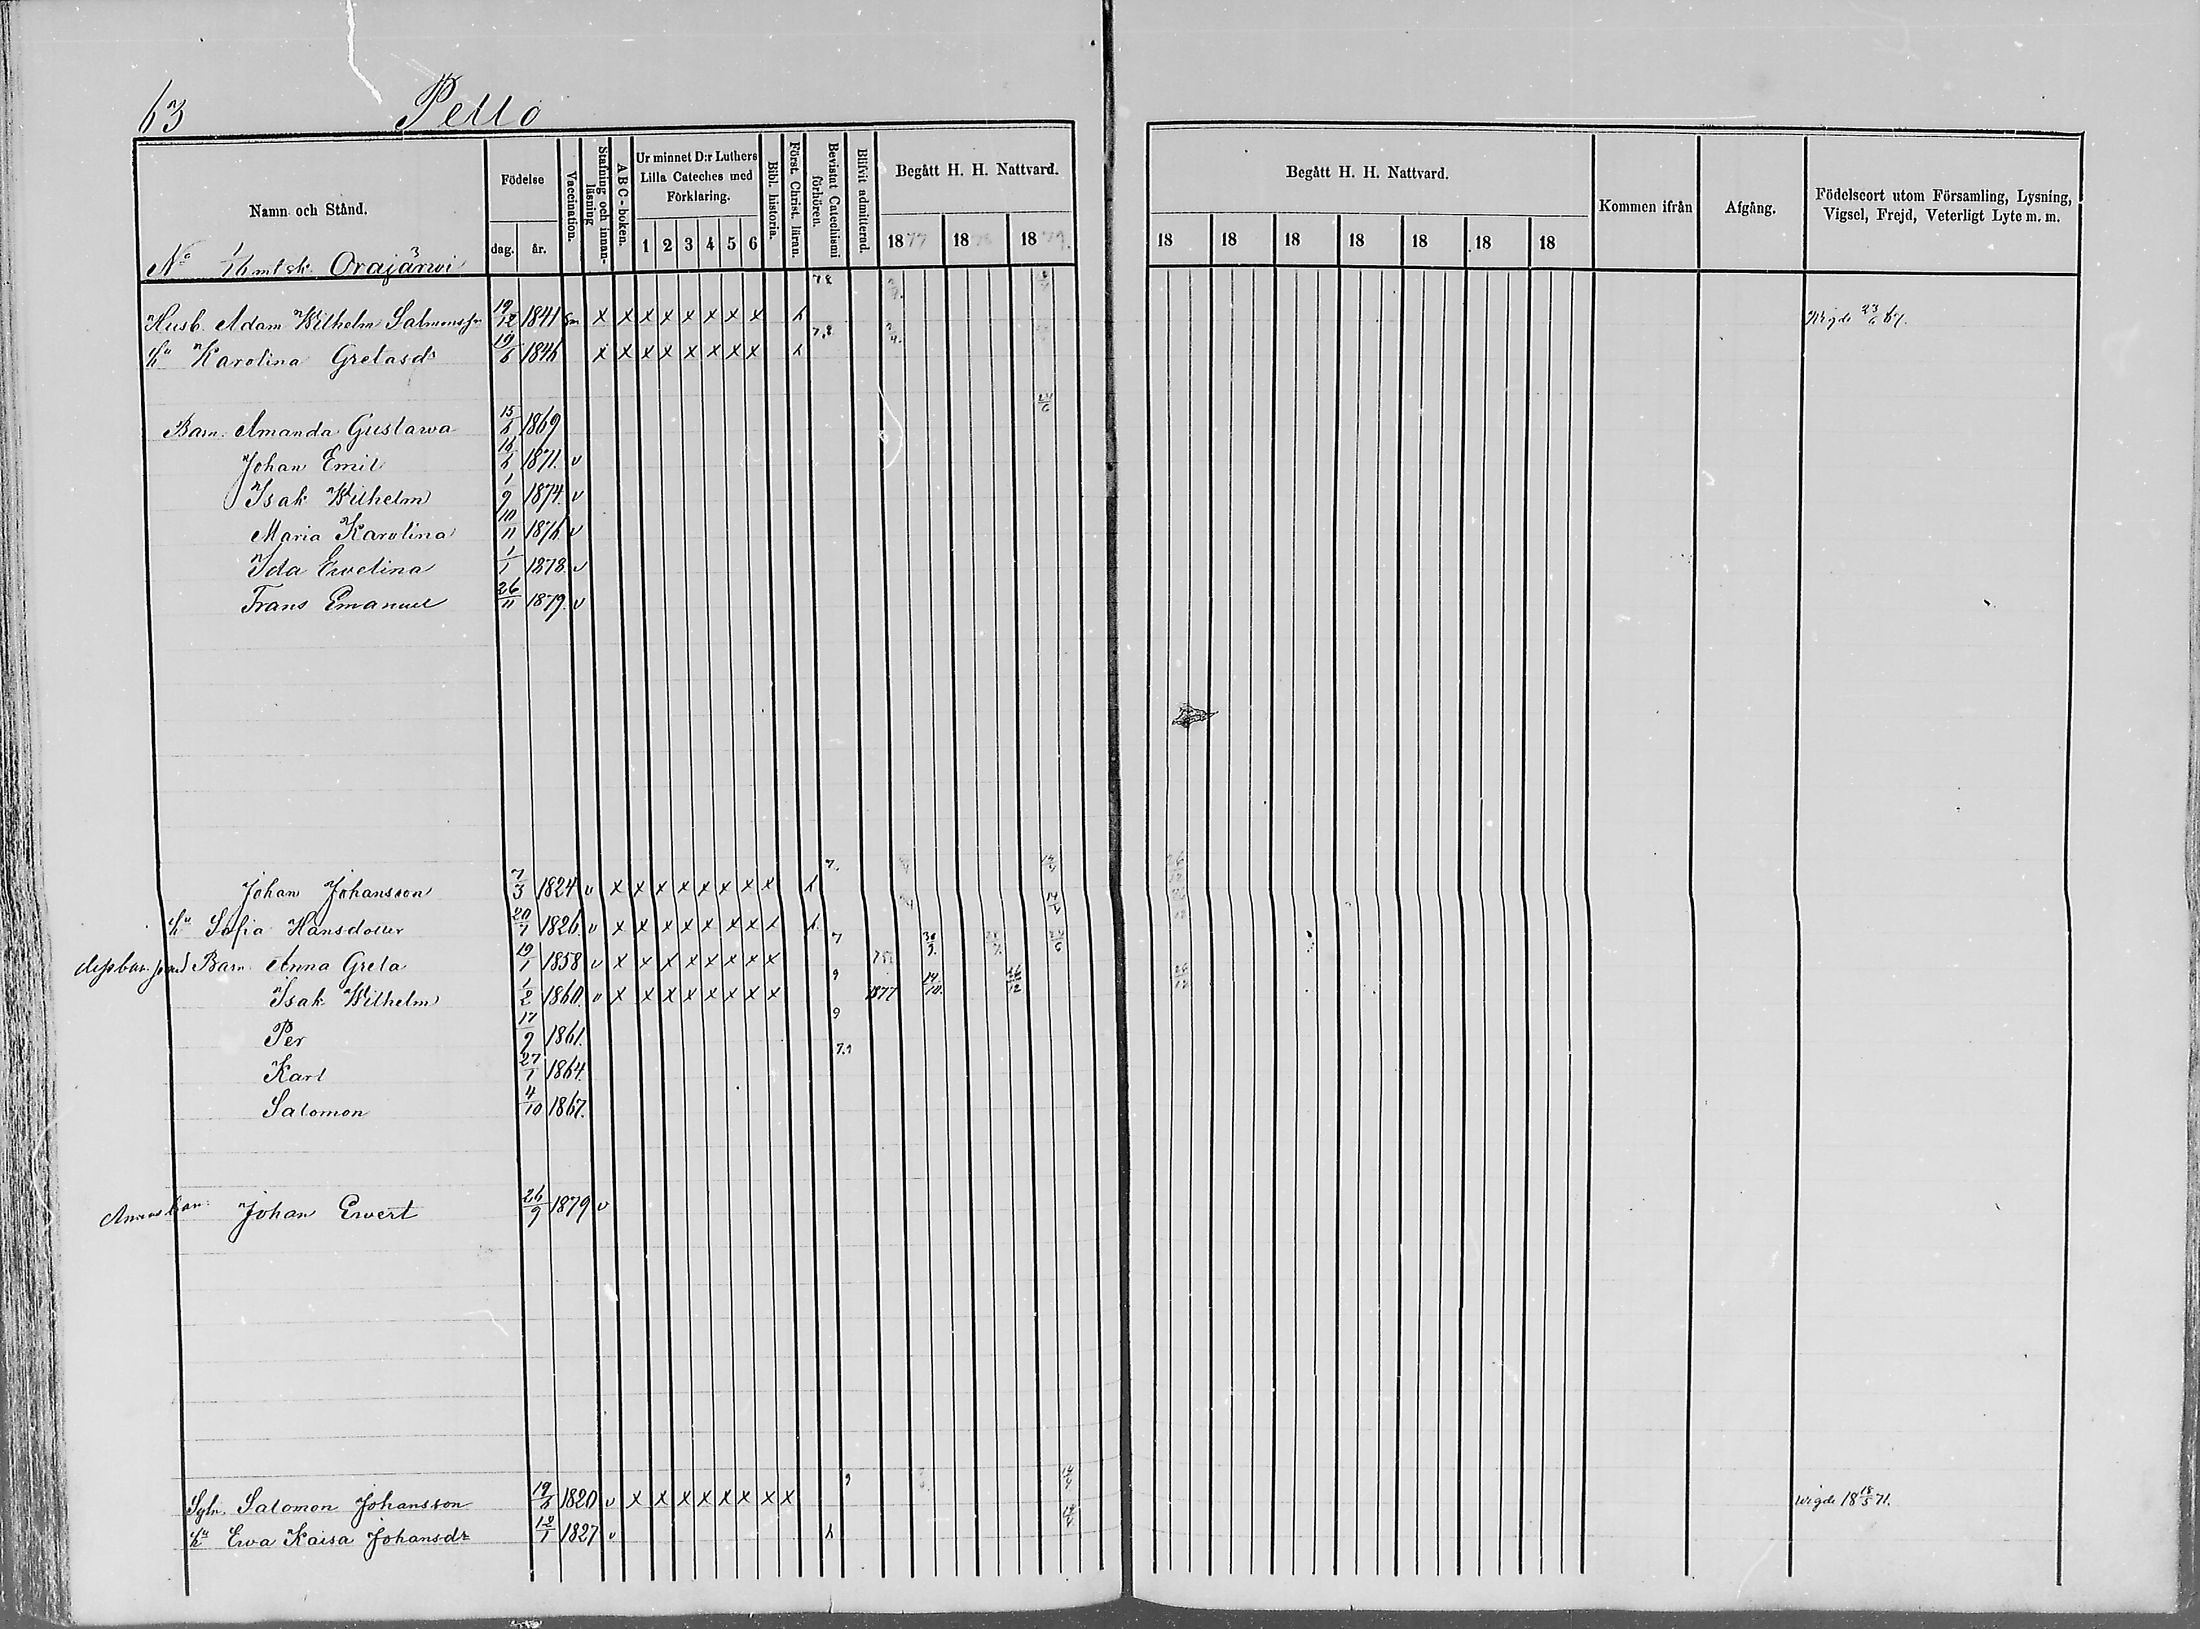 63 Pello
Namn och Stånd.
Födelse
dag. år.
Vaccination.
Stafning och innanläsning
A B C - boken.
Ur minnet D:r Luthers Lilla Cateches med Förklaring.
1 2 3 4 5 6
Bibl. historia.
Först. Christ. läran.
Bevistat Catechismi förhören.
Blifvit admitterad.
Begått H. H. Nattvard.
1877 1878 1879.
Begått H. H. Nattvard.
18 18 18 18 18 18 18
Kommen ifrån
Afgång.
Födelseort utom Församling, Lysning, Vigsel, Frejd, Veterligt Lyte m. m.
No 1/16 mtl sk. Orajärwi
Husb. Adam Wilhelm Salomonss 19/12 1841 x x x x x x x x Wigde 23/6 67.
Hu Karolina Gretasdr 19/6 1846 x x x x x x x x
Barn. Amanda Gustawa 15/6 1869
Johan Emil 16/6 1871. v
Isak Wilhelm 1/9 1874. v
Maria Karolina 10/11 1876 v
Ida Ewelina 1/1 1878. v
Frans Emanuel 26/11 1879. v
Johan Johansson 7/3 1824 v x x x x x x x x
Hu Sofia Hansdotter 20/7 1826. v x x x x x x x x
Barn. Anna Greta 19/1 1858 v x x x x x x x x
Isak Wilhelm 1/2 1860. v x x x x x x x x 1877 14/10. 26/12 26/12
Per 17/9 1861.
Karl 27/1 1864.
Salomon 4/10 1867.
Annas barn. Johan Ewert 26/9 1879 v
Sytn. Salomon Johansson 19/6 1820 v x x x x x x x x wigde 18 18/5 71.
Hu Ewa Kaisa Johansdr 12/1 1827 v